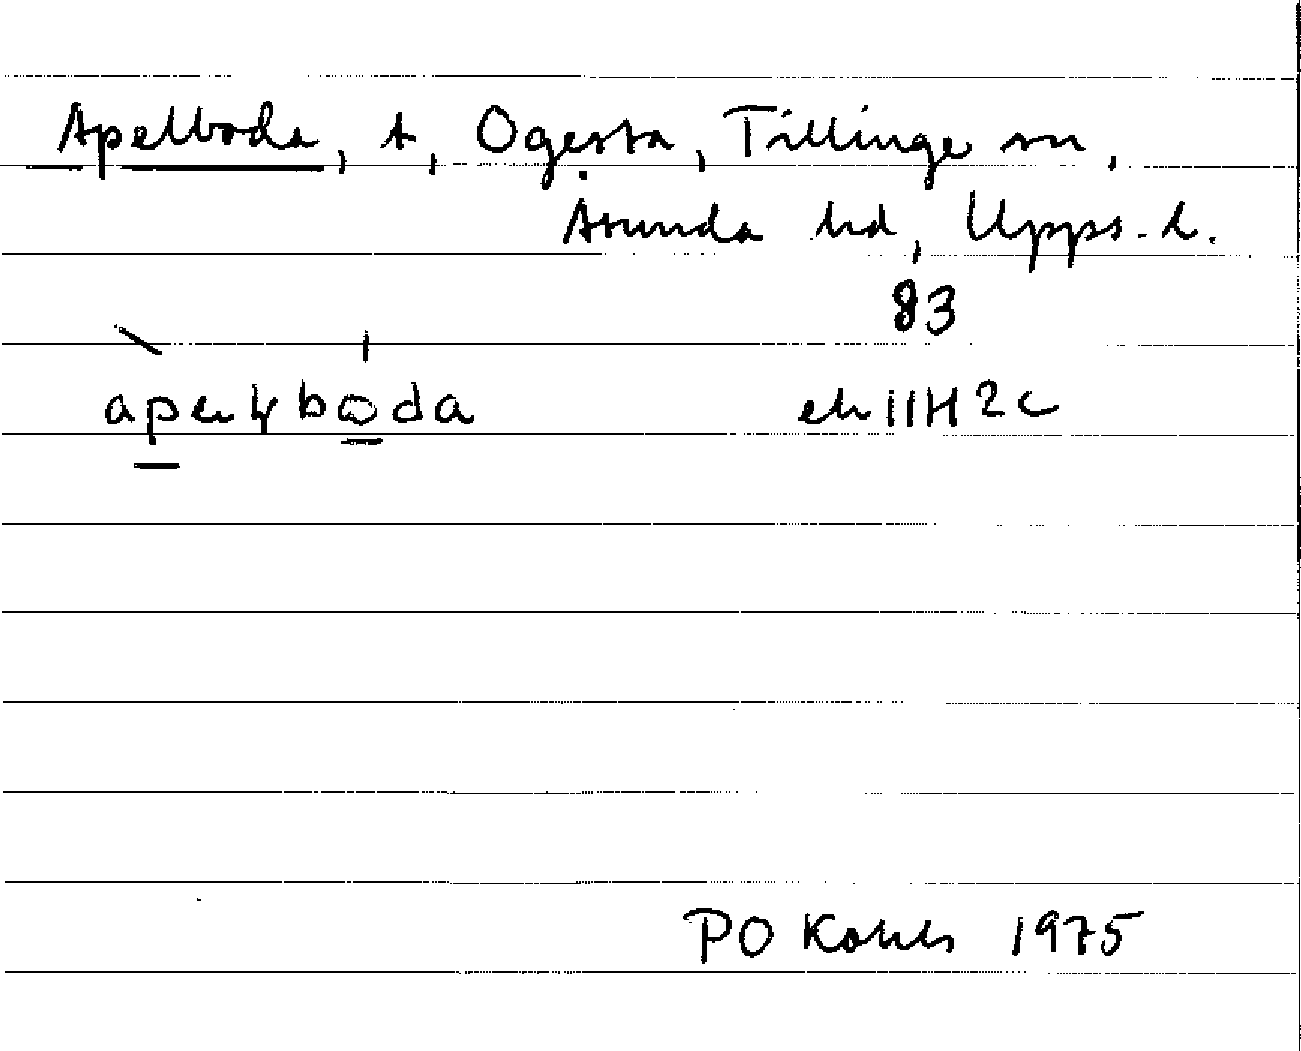 Apelboda, t, Ogesta, Tillinge sn,
Åsunda hd, Upps. l.
83
ek 11H 2c
PO Kohls 1975